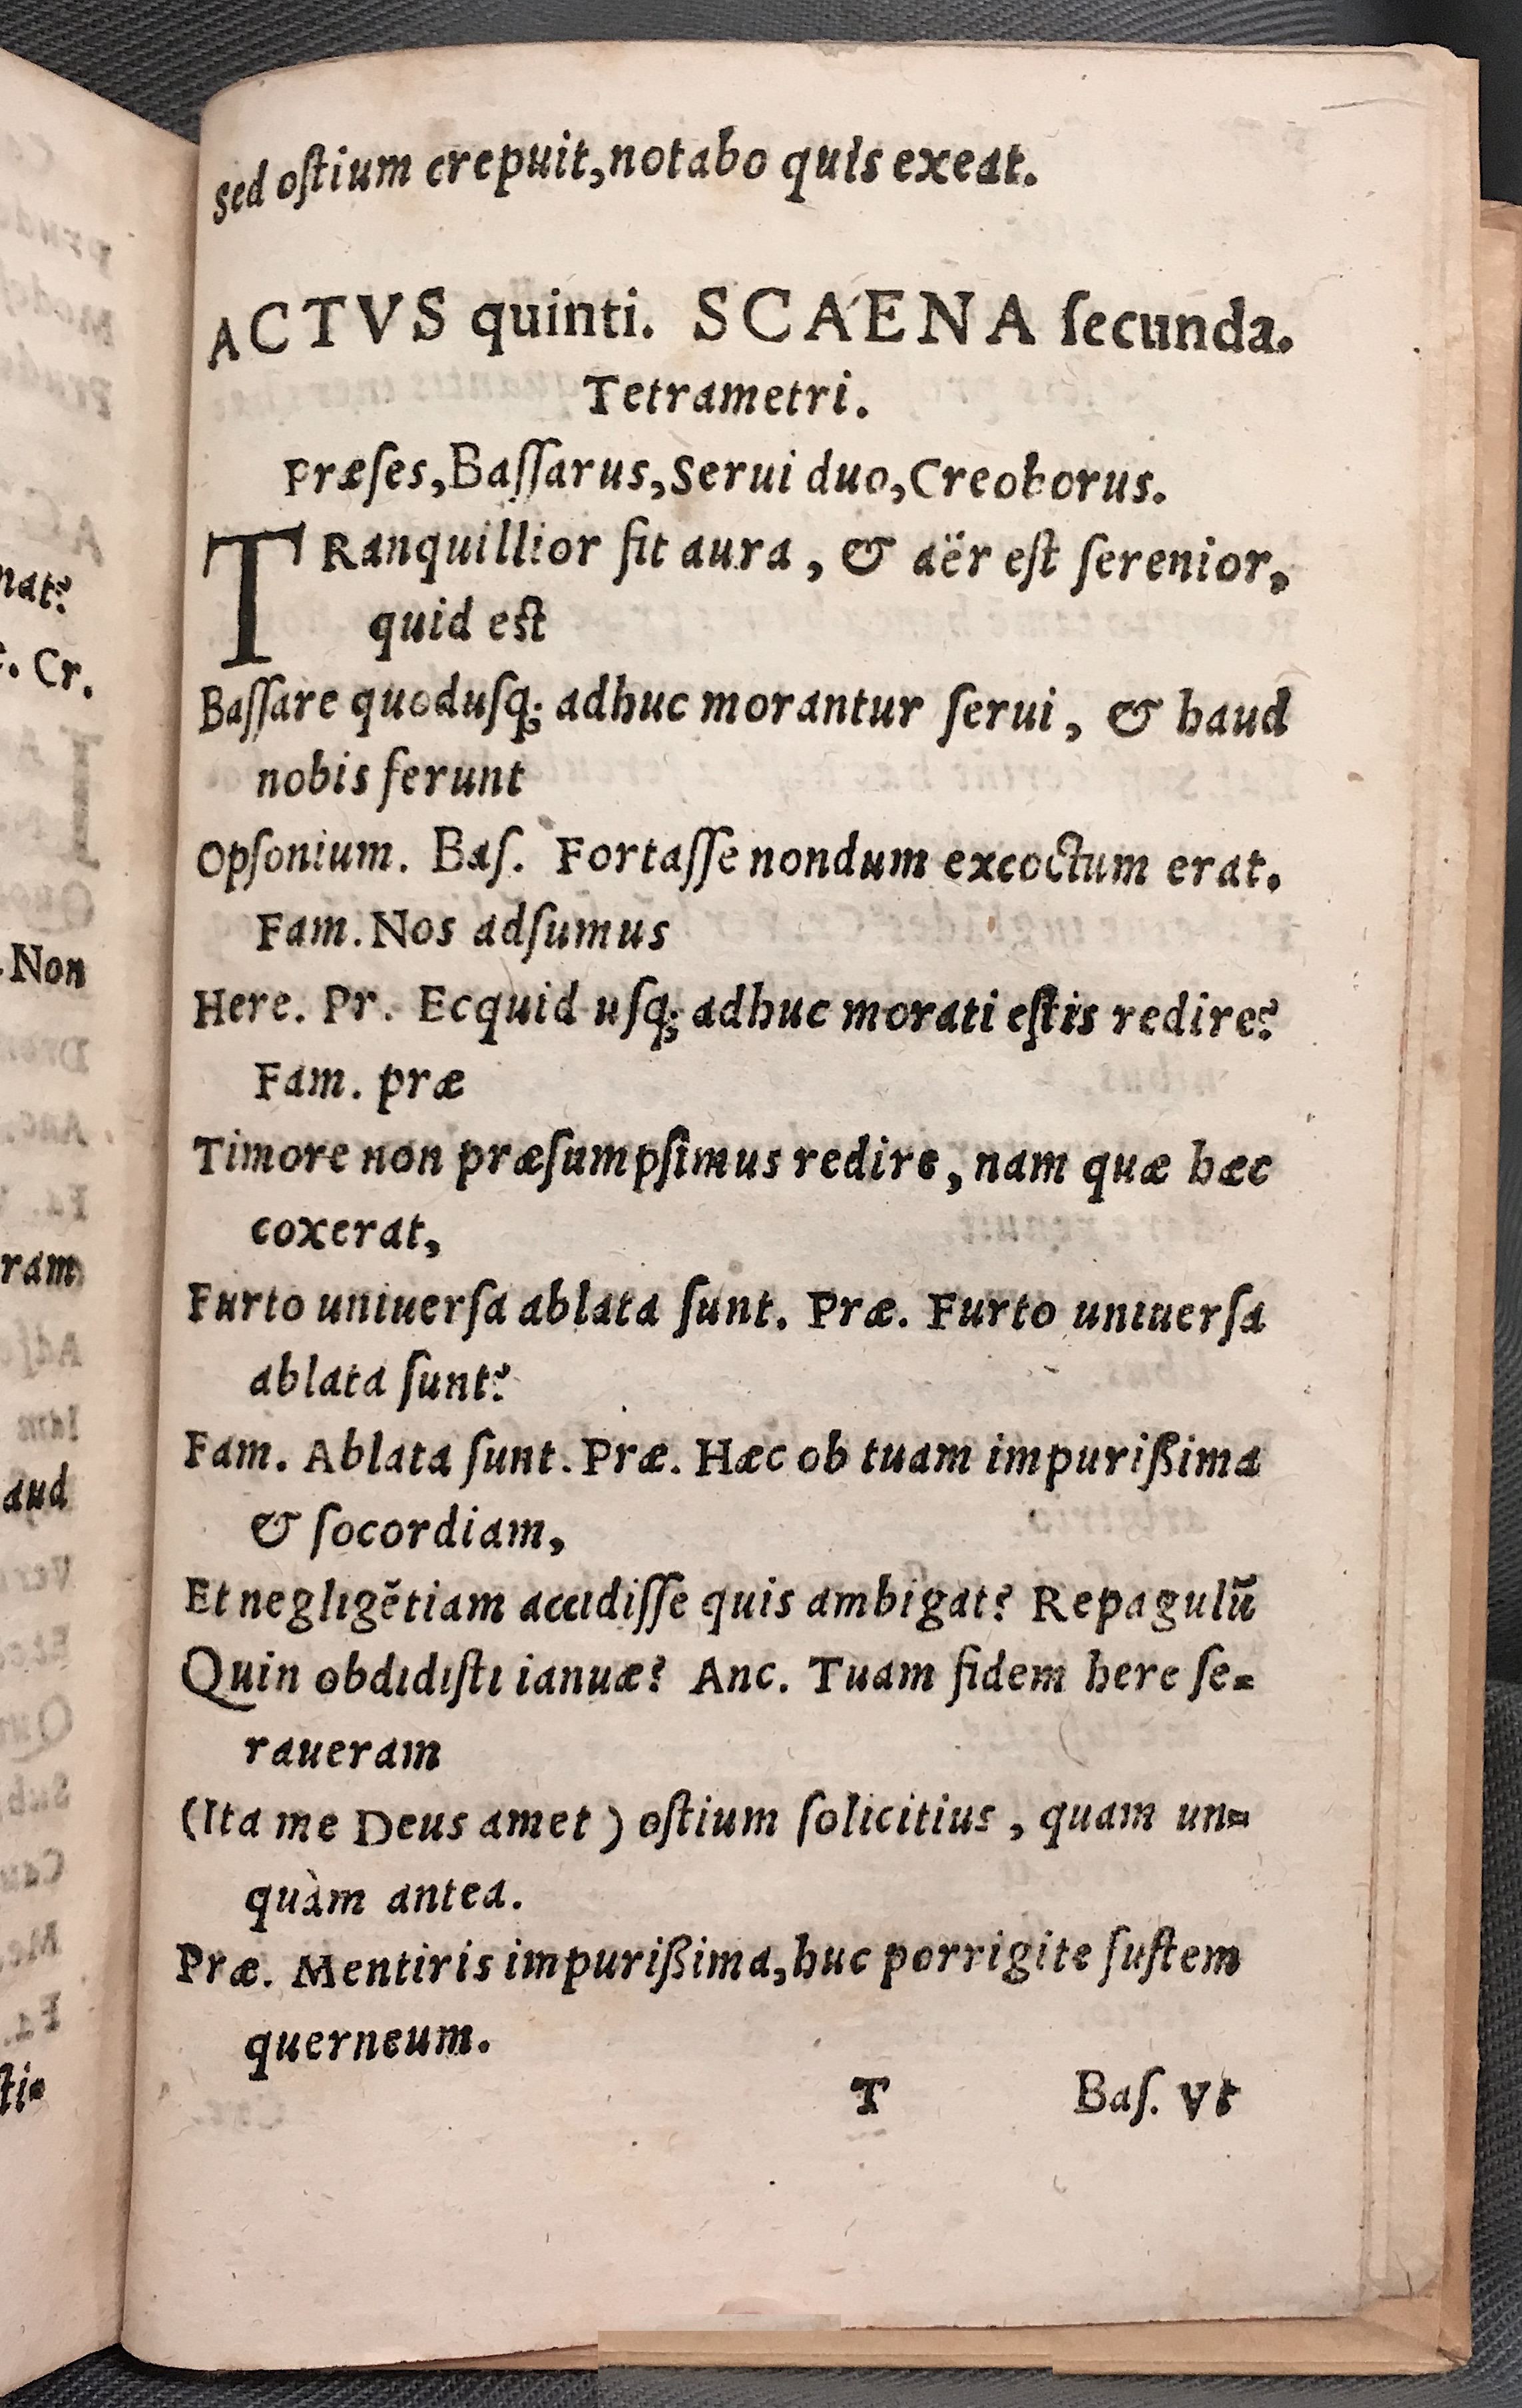 Sed oſtium crepuit, notabo quis exeat.
ACTVS quinti. SCAENA ſecunda.
Tetrametri.
Præſes, Baſſarus, Serui duo, Creoborus.
TRanquillior fit aura, & aër eſt ſerenior,
quid eſt
Baſſare quoduſq; adhuc morantur ſerui, & haud
nobis ferunt
Opſonium. Baſ. Fortaſſe nondum excoctum erat.
Fam. Nos adſumus
Here. Pr. Ecquid uſq; adhuc morati eſtis redire?
Fam. præ
Timore non præſumpſimus redire, nam quæ hæc
coxerat,
Furto uniuerſa ablata ſunt. Præ. Furto uniuerſa
ablata ſunt?
Fam. Ablata ſunt. Præ. Hæc ob tuam impurißima
& ſocordiam,
Et negligẽtiam accidiſſe quis ambigat? Repagulũ
Quin obdidiſti ianuæ? Anc. Tuam fidem here ſe-
raueram
(Ita me Deus amet) oſtium ſolicitius, quam un-
quàm antea.
Præ. Mentiris impurißima, huc porrigite fuſtem
querneum.
T Baſ. Vt
nat?
. Cr.
Non
ram
aud
ſti-